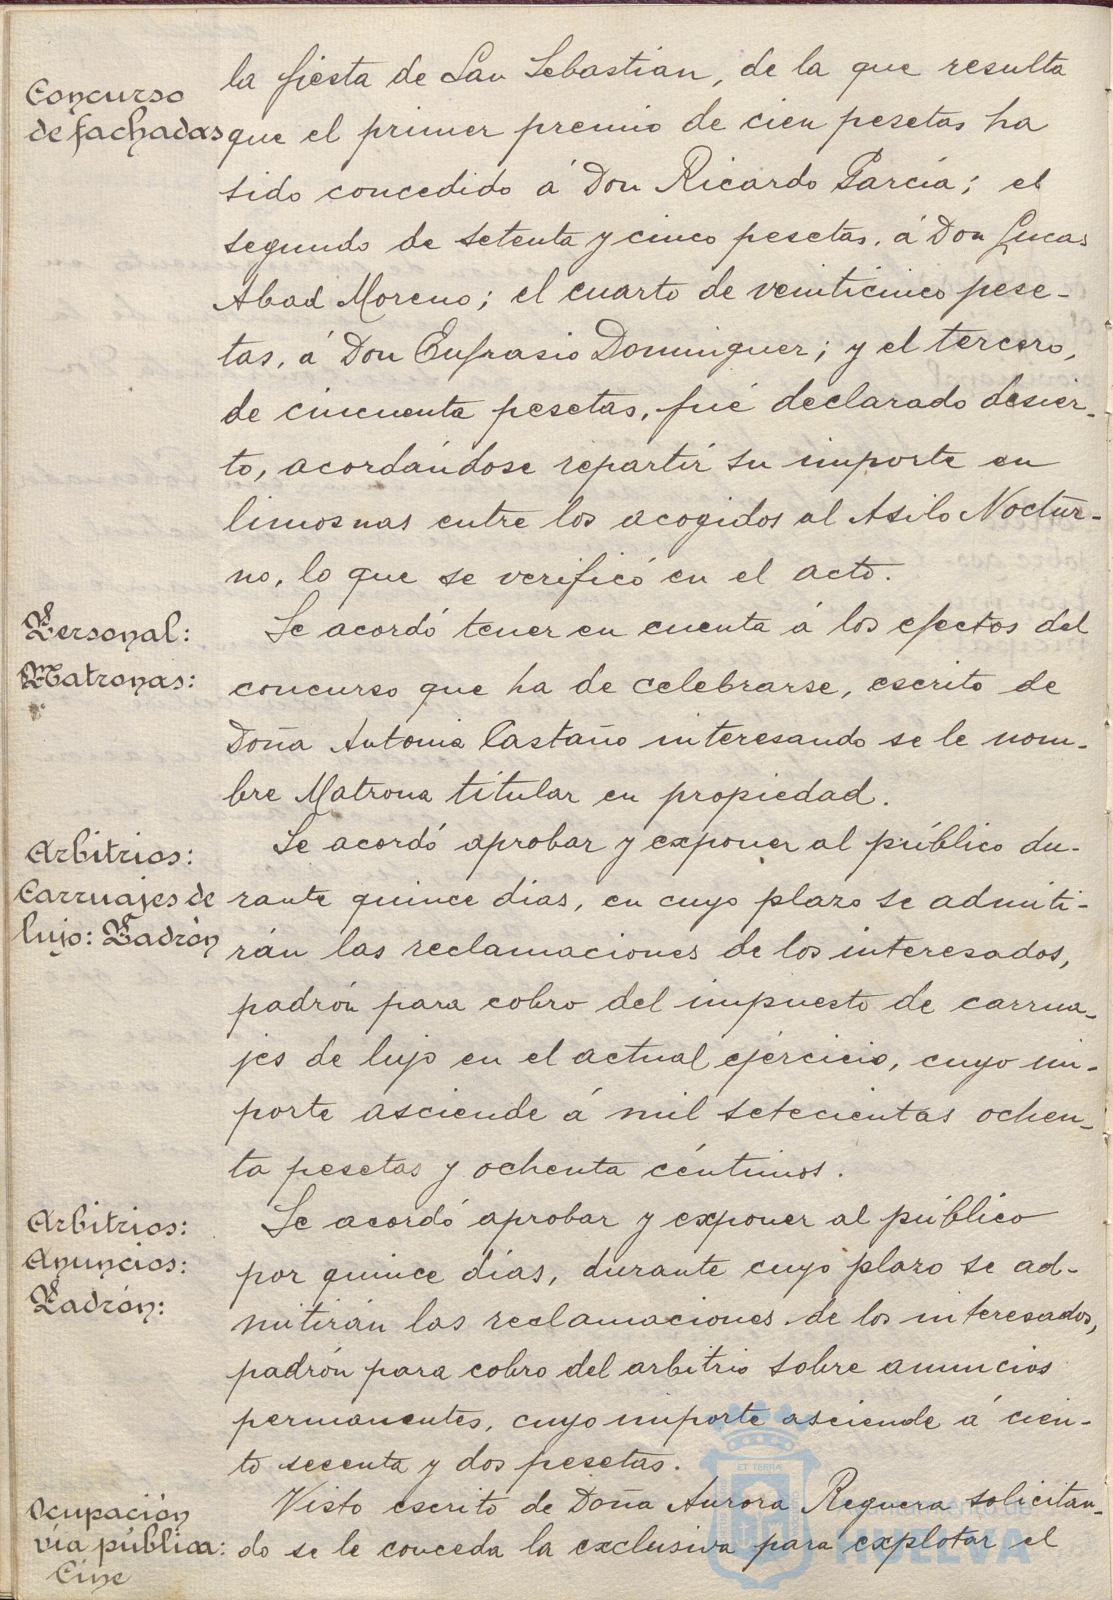 Concurso
de fachadas
la fiesta de San Sebastián, de la que resulta
que el primer premio de cien pesetas ha
sido concedido á Don Ricardo García; el
segundo de setenta y cinco pesetas, á Don Lucas
Abad Moreno; el cuarto de veinticinco pese-
tas, á Don Eufrasio Dominguez; y el tercero,
de cincuenta pesetas, fué declarado desier-
to, acordándose repartir su importe en
limosnas entre los acogidos al Asilo Noctur-
no, lo que se verificó en el acto.
Personal:
Matronas:
Se acordó tener en cuenta á los efectos del
concurso que ha de celebrarse, escrito de
Doña Antonia Castaño interesando se le nom-
bre Matrona titular en propiedad.
Arbitrios:
Carruajes de
lujo: Padrón
Se acordó aprobar y exponer al público du-
rante quince dias, en cuyo plazo se admiti-
rán las reclamaciones de los interesados,
padrón para cobro del impuesto de carrua-
jes de lujo en el actual ejercicio, cuyo im-
porte asciende á mil setecientas ochen-
ta pesetas y ochenta céntimos.
Arbitrios:
Anuncios:
Padrón:
Se acordó aprobar y exponer al público
por quince días, durante cuyo plazo se ad-
mitirán las reclamaciones de los interesados,
padrón para cobro del arbitrio sobre anuncios
permanentes, cuyo importe asciende á cien-
to secenta y dos pesetas.
Ocupación
vía pública:
Cine
Visto escrito de Doña Aurora Reguera solicitan-
do se le conceda la exclusiva para explotar el
ET TERRA
Ayuntamiento de
HUELVA